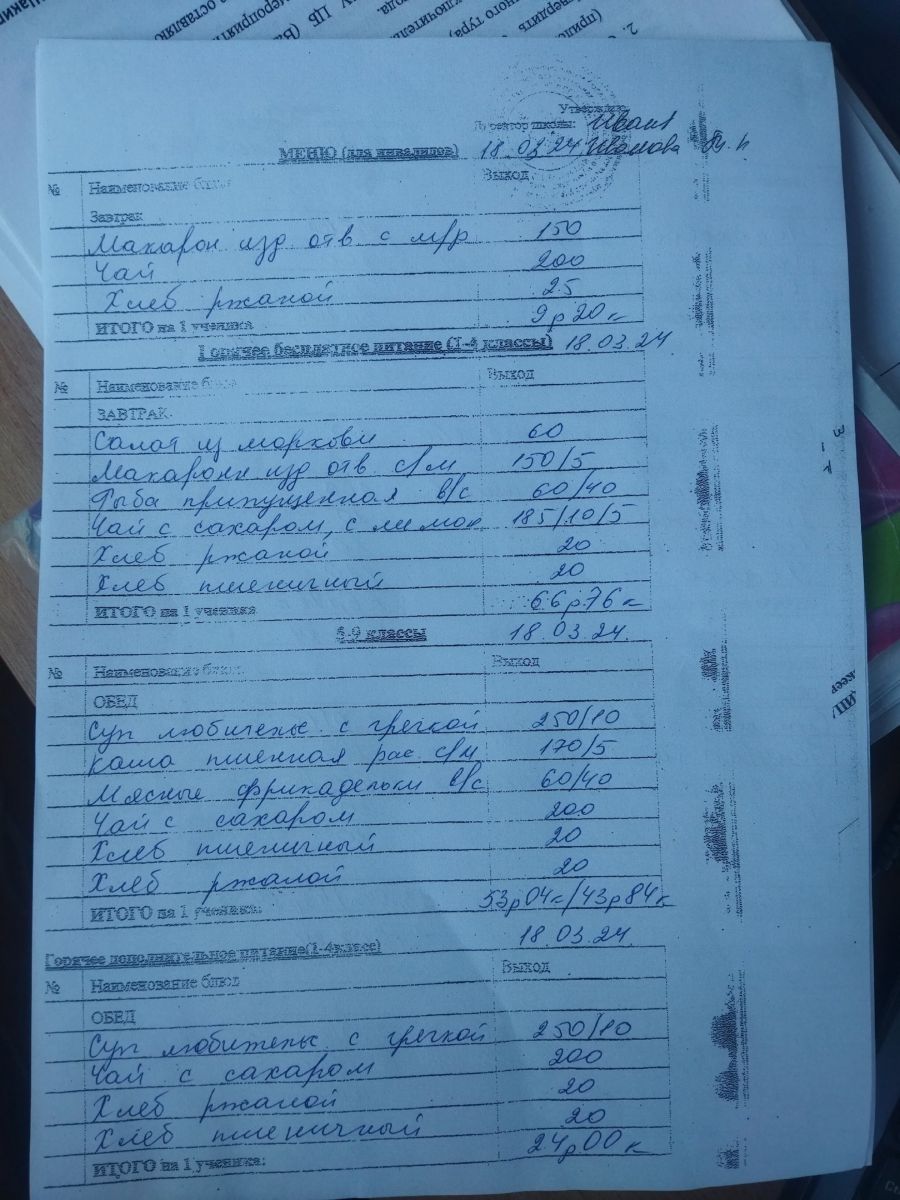 Утверждаю
Директор школы: Иван
МЕНЮ (для инвалидов) 18.03.24 Иванова
№ Наименование блюд Выход
Завтрак
Макарон изд отв с м/р 150
Чай 200
Хлеб ржаной 25
ИТОГО на 1 ученика 9р20к
Горячее бесплатное питание (1-4 классы) 18.03.24
№ Наименование блюд Выход
ЗАВТРАК
Салат из моркови 60
Макароны изд отв с/м 150/5
Рыба припущенная в/с 60/40
Чай с сахаром, с лимон 185/10/5
Хлеб ржаной 20
Хлеб пшеничный 20
ИТОГО на 1 ученика 66р76к
5-9 классы 18.03.24.
№ Наименование блюд Выход
ОБЕД
Суп любительс с гречкой 250/10
Каша пшенная рас с/м 170/5
Мясные фрикадельки в/с 60/40
Чай с сахаром 200
Хлеб пшеничный 20
Хлеб ржаной 20
ИТОГО на 1 ученика: 53р04к/43р84к
18.03.24.
Горячее дополнительное питание(1-4класс)
№ Наименование блюд Выход
ОБЕД
Суп любительс с гречкой 250/10
Чай с сахаром 200
Хлеб ржаной 20
Хлеб пшеничный 20
ИТОГО на 1 ученика: 24р00к